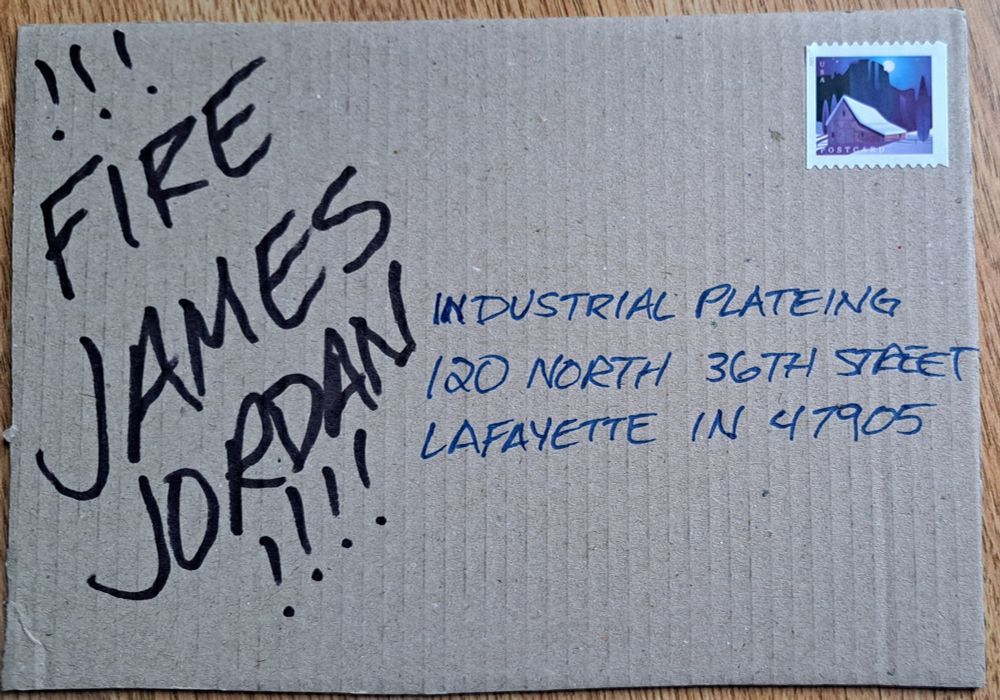 !!!
FIRE
JAMES
JORDAN
!!!!
USA
POSTCARD
INDUSTRIAL PLATEING
120 NORTH 36TH STREET
LAFAYETTE IN 47905